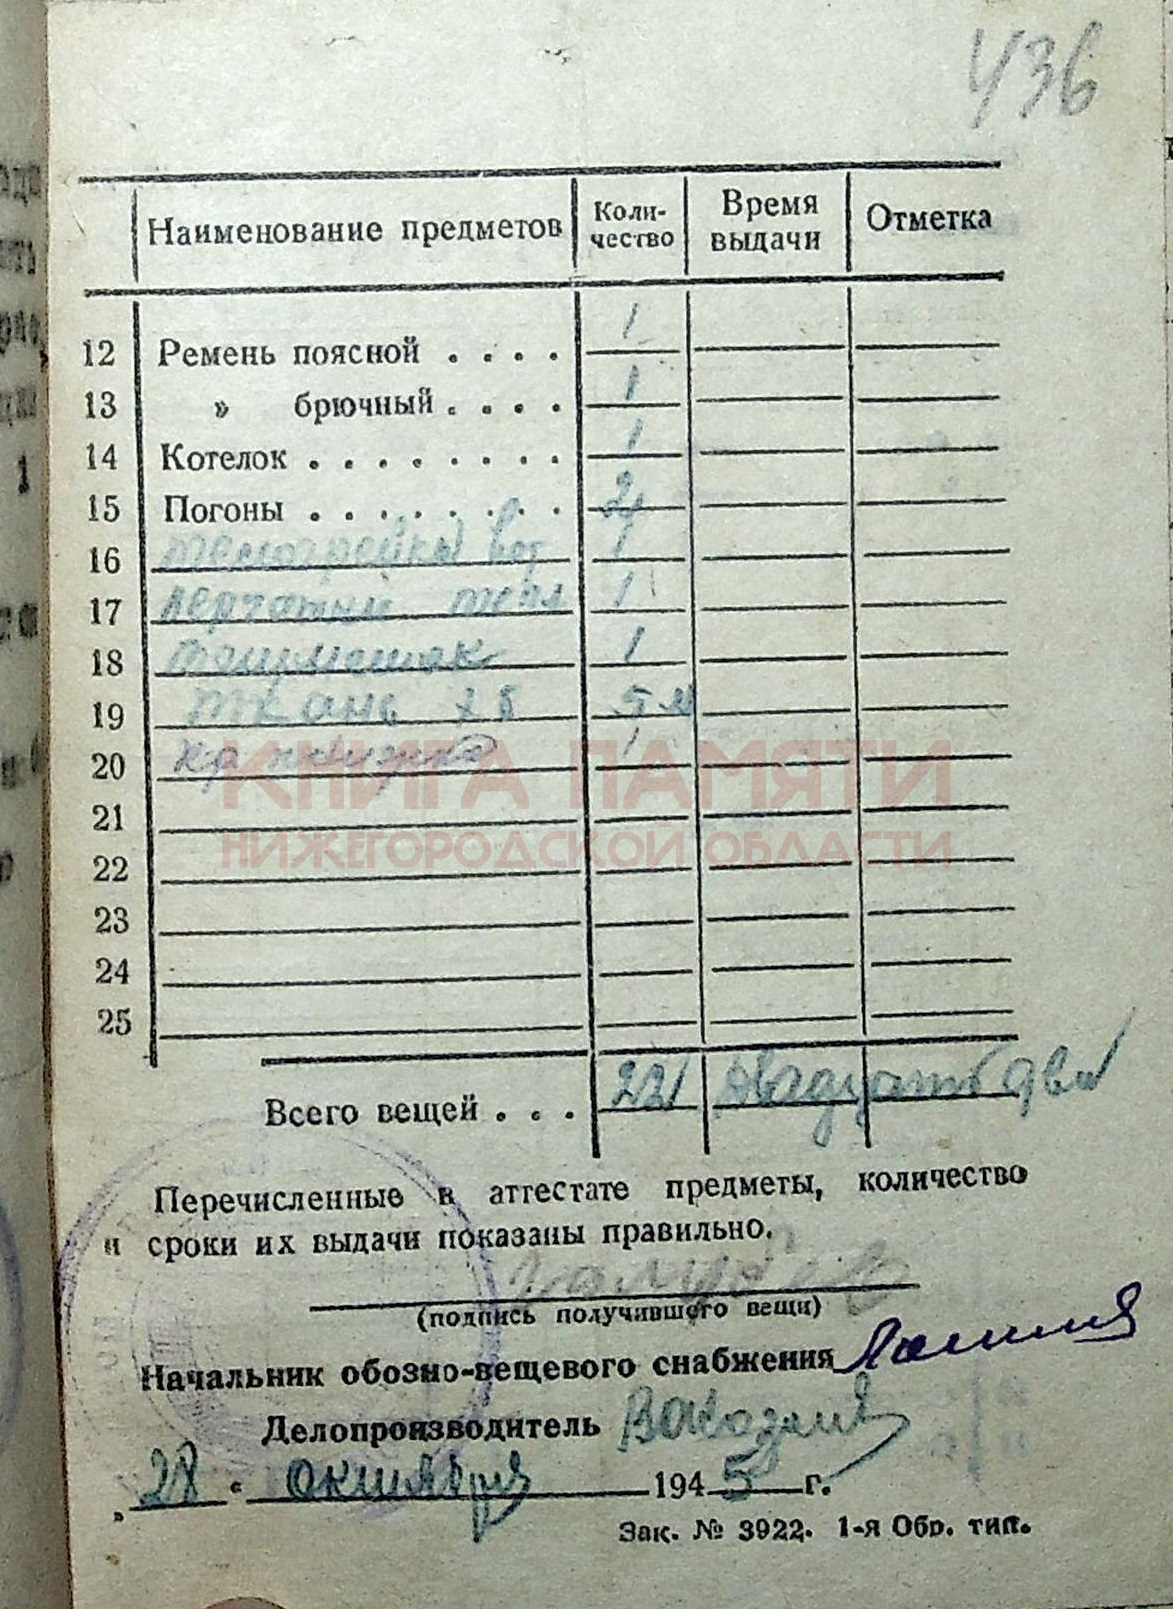 436
Наименование предметов Коли- чество Время выдачи Отметка
12 Ремень поясной . . . . 1
13 » брючный . . . . 1
14 Котелок . . . . . . . . 1
15 Погоны . . . . . . . . 2
16 1
17 перчатки 1
18 вещмешок 1
19 ткань х б 5 м
20 кр книжка 1
КНИГА ПАМЯТИ
НИЖЕГОРОДСКОЙ ОБЛАСТИ
21
22
23
24
25
Всего вещей . . . 22
Перечисленные в аттестате предметы, количество
и сроки их выдачи показаны правильно.
(подпись получившего вещи)
Начальник обозно-вещевого снабжения
Делопроизводитель
„28“ октября 1945 г.
Зак. № 3922. 1-я Обр. тип.